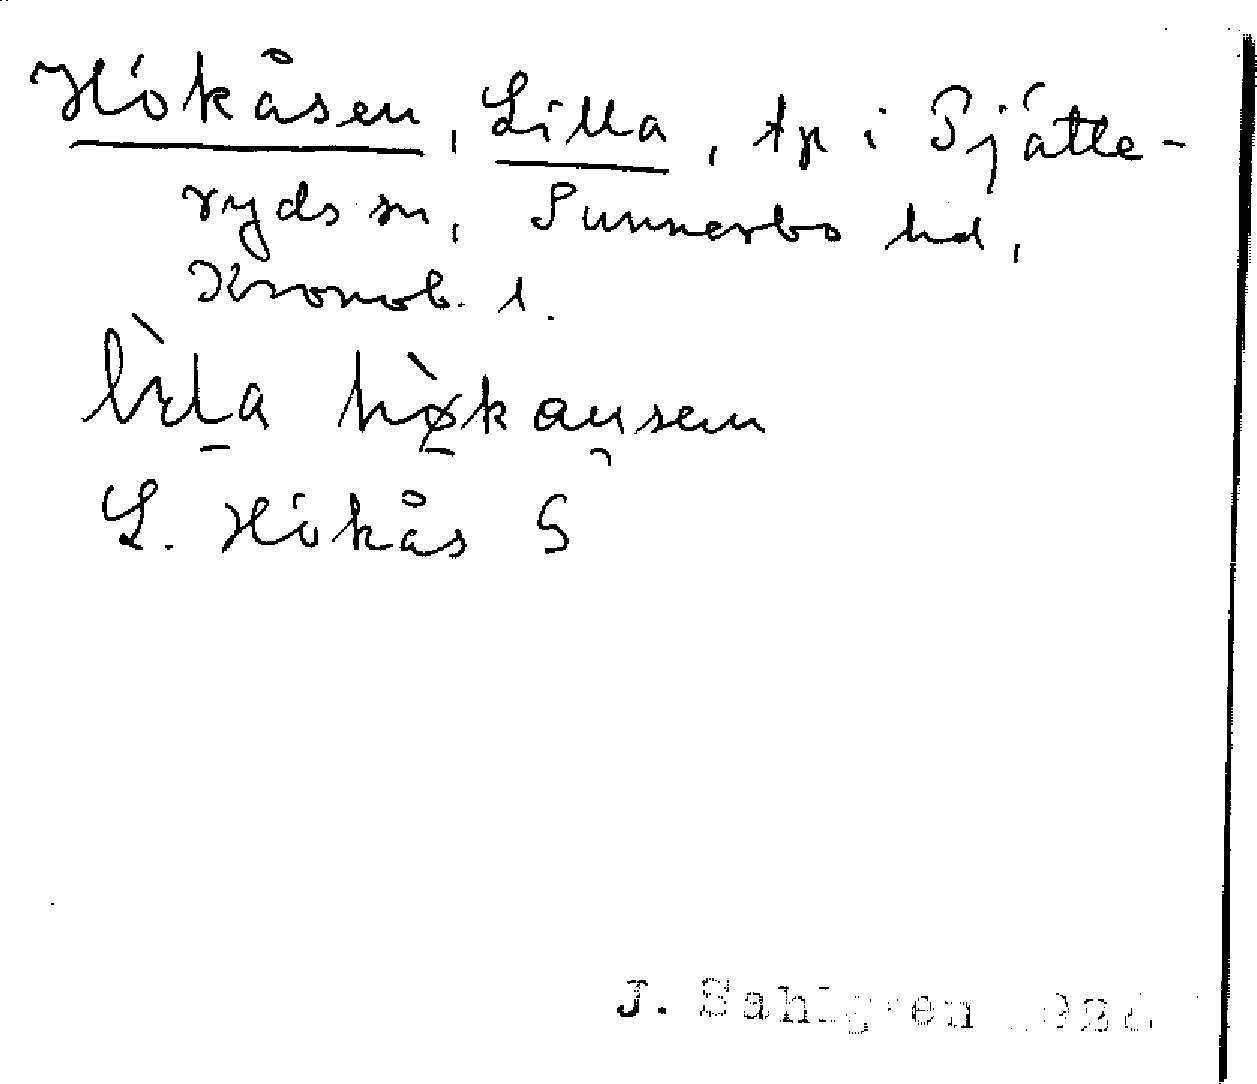 Hökåsen, Lilla, tp i Pjätte-
ryds sn, Sunnerbo hd,
Kronob. l.
hø̀kausen
L. Hökås G
J. Sahlgren